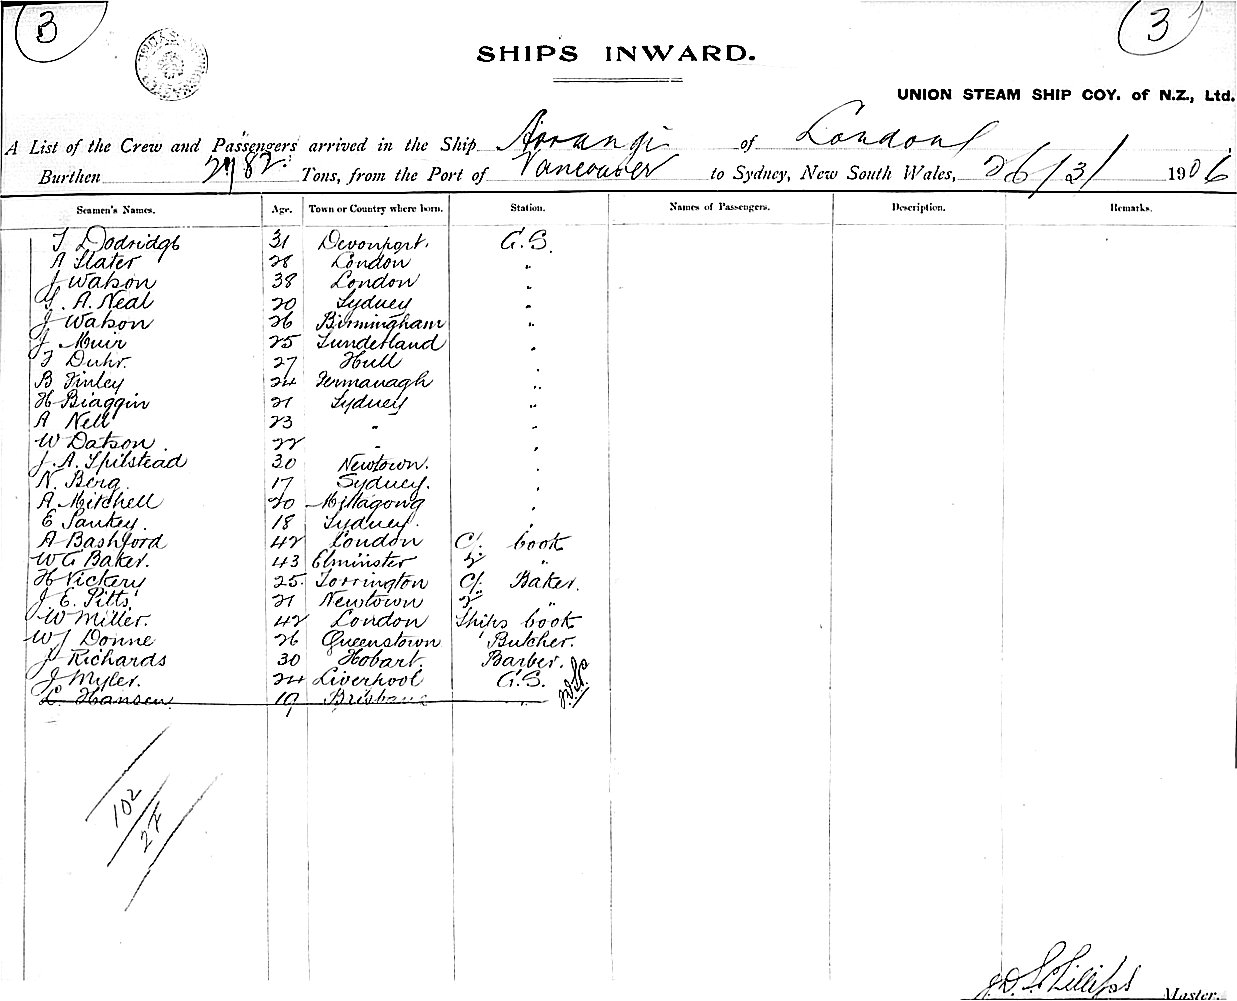 3
3
SHIPS INWARD.
UNION STEAM SHIP COY. of N.Z., Ltd.
A List of the Crew and Passengers arrived in the Ship Aorangi of London
Burthen 2782 Tons, from the Port of Vancouver to Sydney, New South Wales, 26/3/1906
Seamen's Names. Age. Town or Country where born. Station. Names of Passengers. Description. Remarks.
T Dodridge 31 Devonport. G.S.
A Slater 28 London "
J Watson 38 London "
G. A. Neal 20 Sydney "
J Watson 26 Birmingham "
J Muir 25 Sunderland "
T Duhr. 27 Hull "
B Finley 24 Fermanagh "
H Biaggin 21 Sydney "
A Nell 23 " "
W Datson 22 " "
J. A. Spilstead 30 Newtown. "
N. Berg 17 Sydney. "
A Mitchell 20 Mittagong "
E Sankey. 18 Sydney. "
A Bashford 42 London C/. Cook
W G Baker. 43 Elminster 2/ "
H Vickery 25. Torrington C/. Baker.
J E. Pitts. 21 Newtown 2/ "
W Miller. 42 London Ships Cook
W J Donne 26 Queenstown " Butcher.
J Richards 30 Hobart. Barber.
J Myler. 24 Liverpool G.S.
L. Hansen 19 Brisbane "
102
27
J. D. S. Phillips Master.